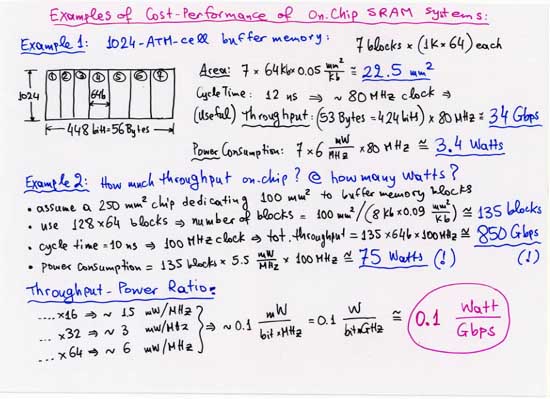 Examples of Cost-Performance of On-Chip SRAM Systems:
Example 1: 1024-ATM-cell buffer memory: 7 blocks × (1K×64) each
① ② ③ ④ ⑤ ⑥ ⑦
1024
64b
448 bits = 56 Bytes
Area: 7 × 64Kb × 0.05 mm²/Kb ≅ 22.5 mm²
Cycle Time: 12 ns ⇒ ~ 80 MHz clock ⇒
(Useful) Throughput: (53 Bytes = 424 bits) × 80 MHz ≅ 34 Gbps
Power Consumption: 7 × 6 mW/MHz × 80 MHz ≅ 3.4 Watts
Example 2: How much throughput on-chip? @ how many Watts?
• assume a 250 mm² chip dedicating 100 mm² to buffer memory blocks
• use 128×64 blocks ⇒ number of blocks = 100 mm²/(8 Kb × 0.09 mm²/Kb) ≅ 135 blocks
• cycle time = 10 ns ⇒ 100 MHz clock ⇒ tot. throughput = 135 × 64b × 100 MHz ≅ 850 Gbps
• power consumption = 135 blocks × 5.5 mW/MHz × 100 MHz ≅ 75 Watts (!) (!)
Throughput-Power Ratio:
.... ×16 ⇒ ~ 1.5 mW/MHz
... ×32 ⇒ ~ 3 mW/MHz
... ×64 ⇒ ~ 6 mW/MHz
⇒ ~ 0.1 mW/bit×MHz = 0.1 W/bit×GHz ≅ 0.1 Watt/Gbps